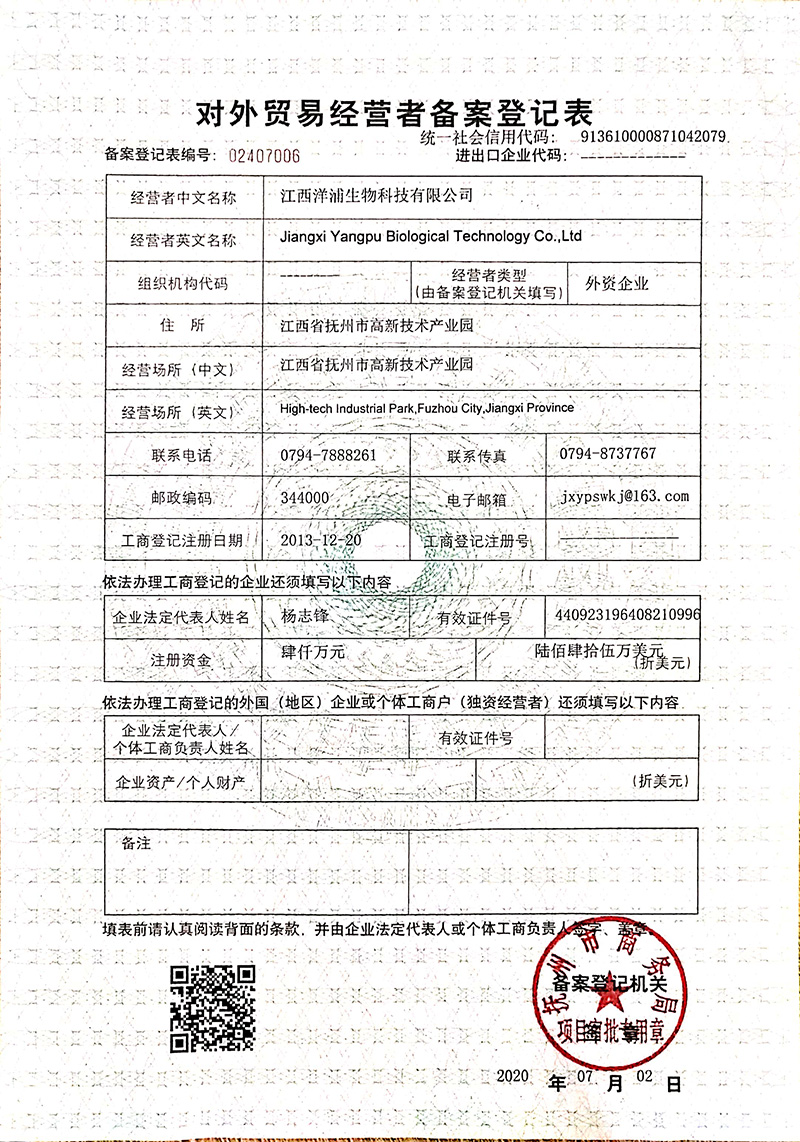 对外贸易经营者备案登记表
统一社会信用代码： 913610000871042079
备案登记表编号：02407006 进出口企业代码：-------------
经营者中文名称 江西洋浦生物科技有限公司
经营者英文名称 Jiangxi Yangpu Biological Technology Co.,Ltd
组织机构代码 --------- 经营者类型 (由备案登记机关填写) 外资企业
住 所 江西省抚州市高新技术产业园
经营场所（中文） 江西省抚州市高新技术产业园
经营场所（英文） High-tech Industrial Park,Fuzhou City,Jiangxi Province
联系电话 0794-7888261 联系传真 0794-8737767
邮政编码 344000 电子邮箱 jxypswkj@163.com
工商登记注册日期 2013-12-20 工商登记注册号 ---------------
依法办理工商登记的企业还须填写以下内容
企业法定代表人姓名 杨志锋 有效证件号 440923196408210996
注册资金 肆仟万元 陆佰肆拾伍万美元 (折美元)
依法办理工商登记的外国（地区）企业或个体工商户（独资经营者）还须填写以下内容
企业法定代表人/
个体工商负责人姓名 有效证件号
企业资产/个人财产 (折美元)
备注
填表前请认真阅读背面的条款，并由企业法定代表人或个体工商负责人签字、盖章。
抚州市商务局
备案登记机关
项目审批专用章
签 章
2020 年 07 月 02 日